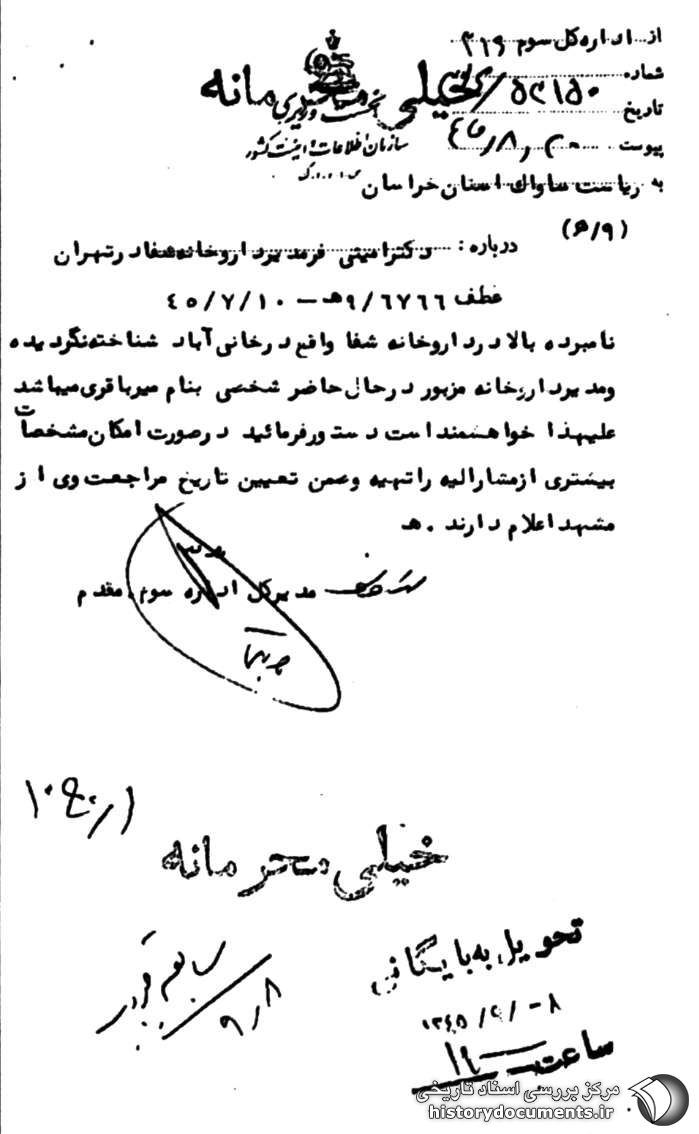 از اداره کل سوم ۳۱۶
شماره ۳۱۶/۵۲۱۵۰
تاریخ
پیوست ۴۵/۸/۲۰
خیلی محرمانه
نخست وزیری
سازمان اطلاعات و امنیت کشور
س.ا.و.ا.ک
به ریاست ساواک استان خراسان
(۹/ه)
درباره : دکتر امینی فرمد یرداروخانه شفا در تهران
عطف ۹/۶۷۶۶ه‍ – ۴۵/۷/۱۰
نامبرده بالا در داروخانه شفا واقع در خانی آباد شناخته نگردیده
ومدیر داروخانه مزبور در حال حاضر شخصی بنام میرباقری میباشد
علیهذا خواهشمند است دستور فرمائید در صورت امکان مشخصات
بیشتری از مشارالیه را تهیه وضمن تعیین تاریخ مراجعت وی از
مشهد اعلام دارند . ه‍
مدیرکل اداره سوم . مقدم
خیلی محرمانه
تحویل به بایگانی
۸-/۹/۱۳۴۵
ساعت ۱۱
سابقه
۹/۸
مرکز بررسی اسناد تاریخی
historydocuments.ir